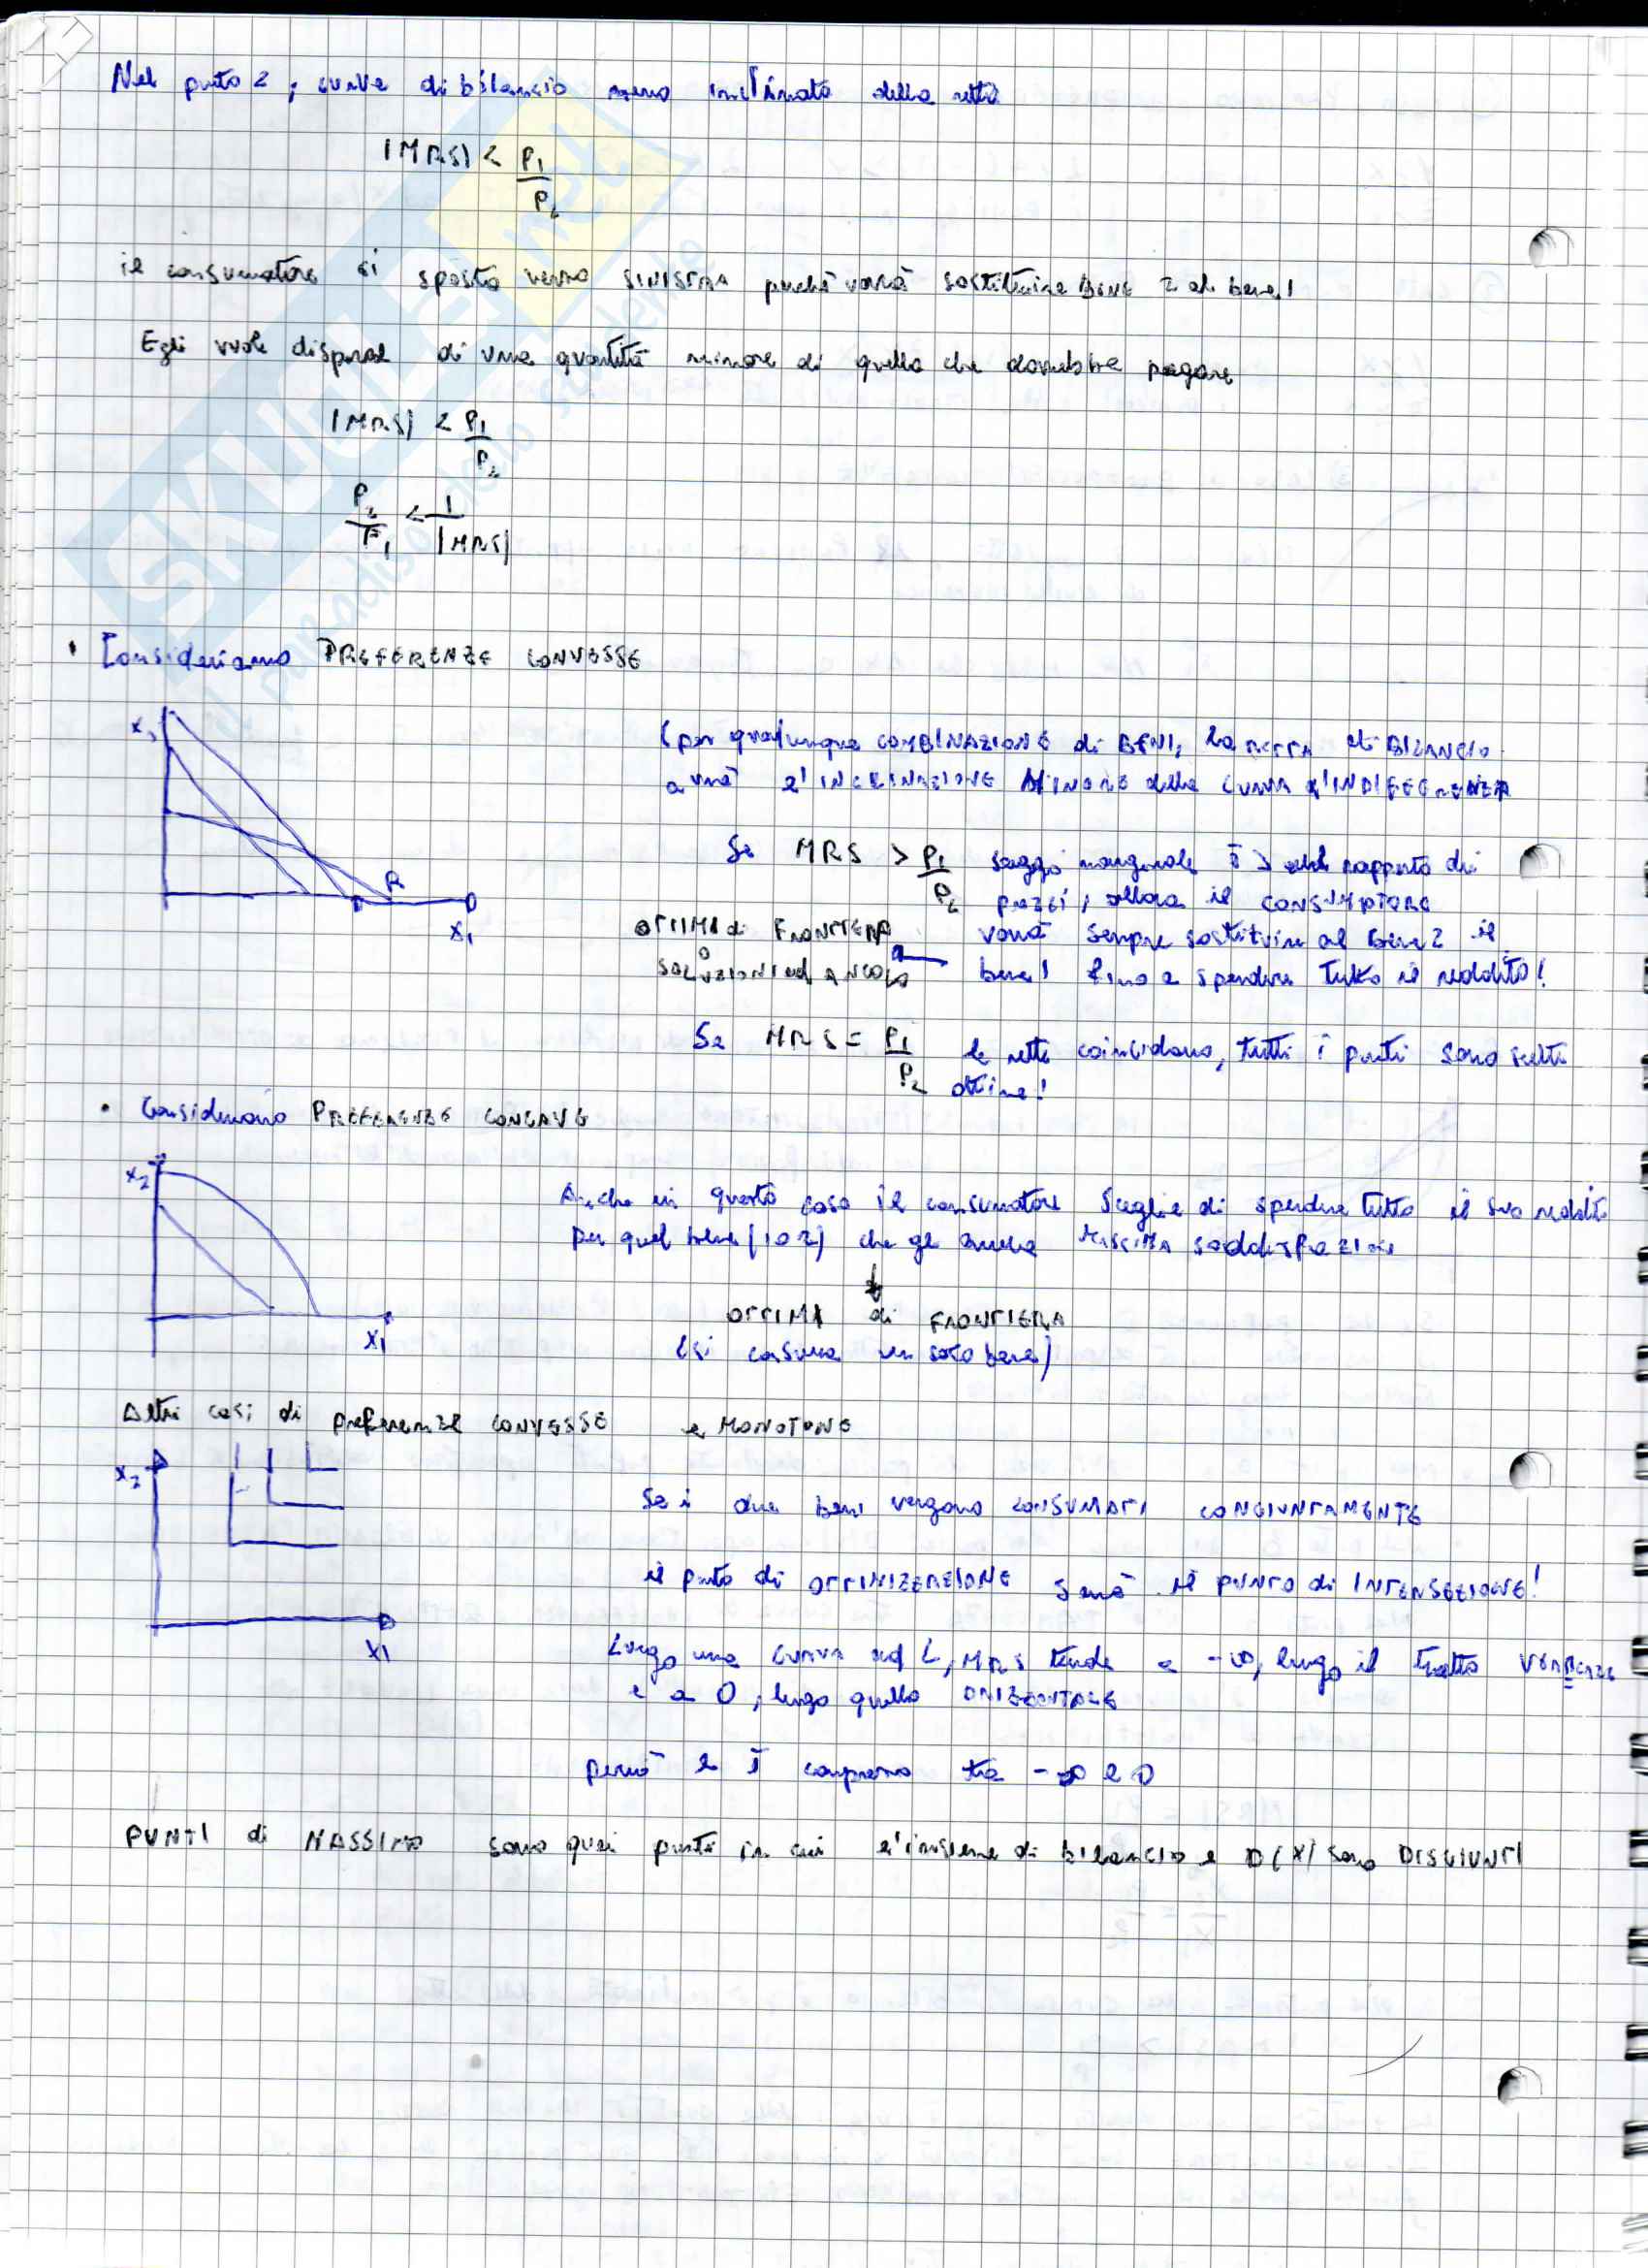 Nel punto 2, curva di bilancio meno inclinata della retta
|MRS| < P1/P2
il consumatore si sposta verso SINISTRA perché vorrà sostituire BENE 2 al bene 1
Egli vuole disporre di una quantità minore di quella che dovrebbe pagare
|MRS| < P1/P2
P2/P1 < 1/|MRS|
• Consideriamo PREFERENZE CONVESSE
x2
R
x1
(per qualunque COMBINAZIONE di BENI, la RETTA di BILANCIO
avrà l'INCLINAZIONE MINORE della CURVA d'INDIFFERENZA
Se MRS > P1/P2 saggio marginale è > del rapporto dei
prezzi, allora il CONSUMATORE
vorrà sempre sostituire al bene 2 il
bene 1 fino a spendere tutto il reddito!
OTTIMI di FRONTIERA
o
SOLUZIONI ad ANGOLO
Se MRS = P1/P2 le rette coincidono, tutti i punti sono scelte
ottime!
• Consideriamo PREFERENZE CONCAVE
x2
x1
Anche in questo caso il consumatore sceglie di spendere tutto il suo reddito
per quel bene (1 o 2) che gli MASSIMA soddisfazione
OTTIMI di FRONTIERA
(si consuma un solo bene)
Altri casi di preferenze CONVESSE e MONOTONE
x2
x1
Se i due beni vengono CONSUMATI CONGIUNTAMENTE
il punto di OTTIMIZZAZIONE sarà il PUNTO di INTERSEZIONE!
Lungo una CURVA ad L, MRS tende a -∞, lungo il tratto VERTICALE
e a 0, lungo quello ORIZZONTALE
però è compreso tra -∞ e 0
PUNTI di MASSIMO sono quei punti in cui l'insieme di bilancio e D(X) sono DISGIUNTI
SKUOLA.net
il paradiso dello studente